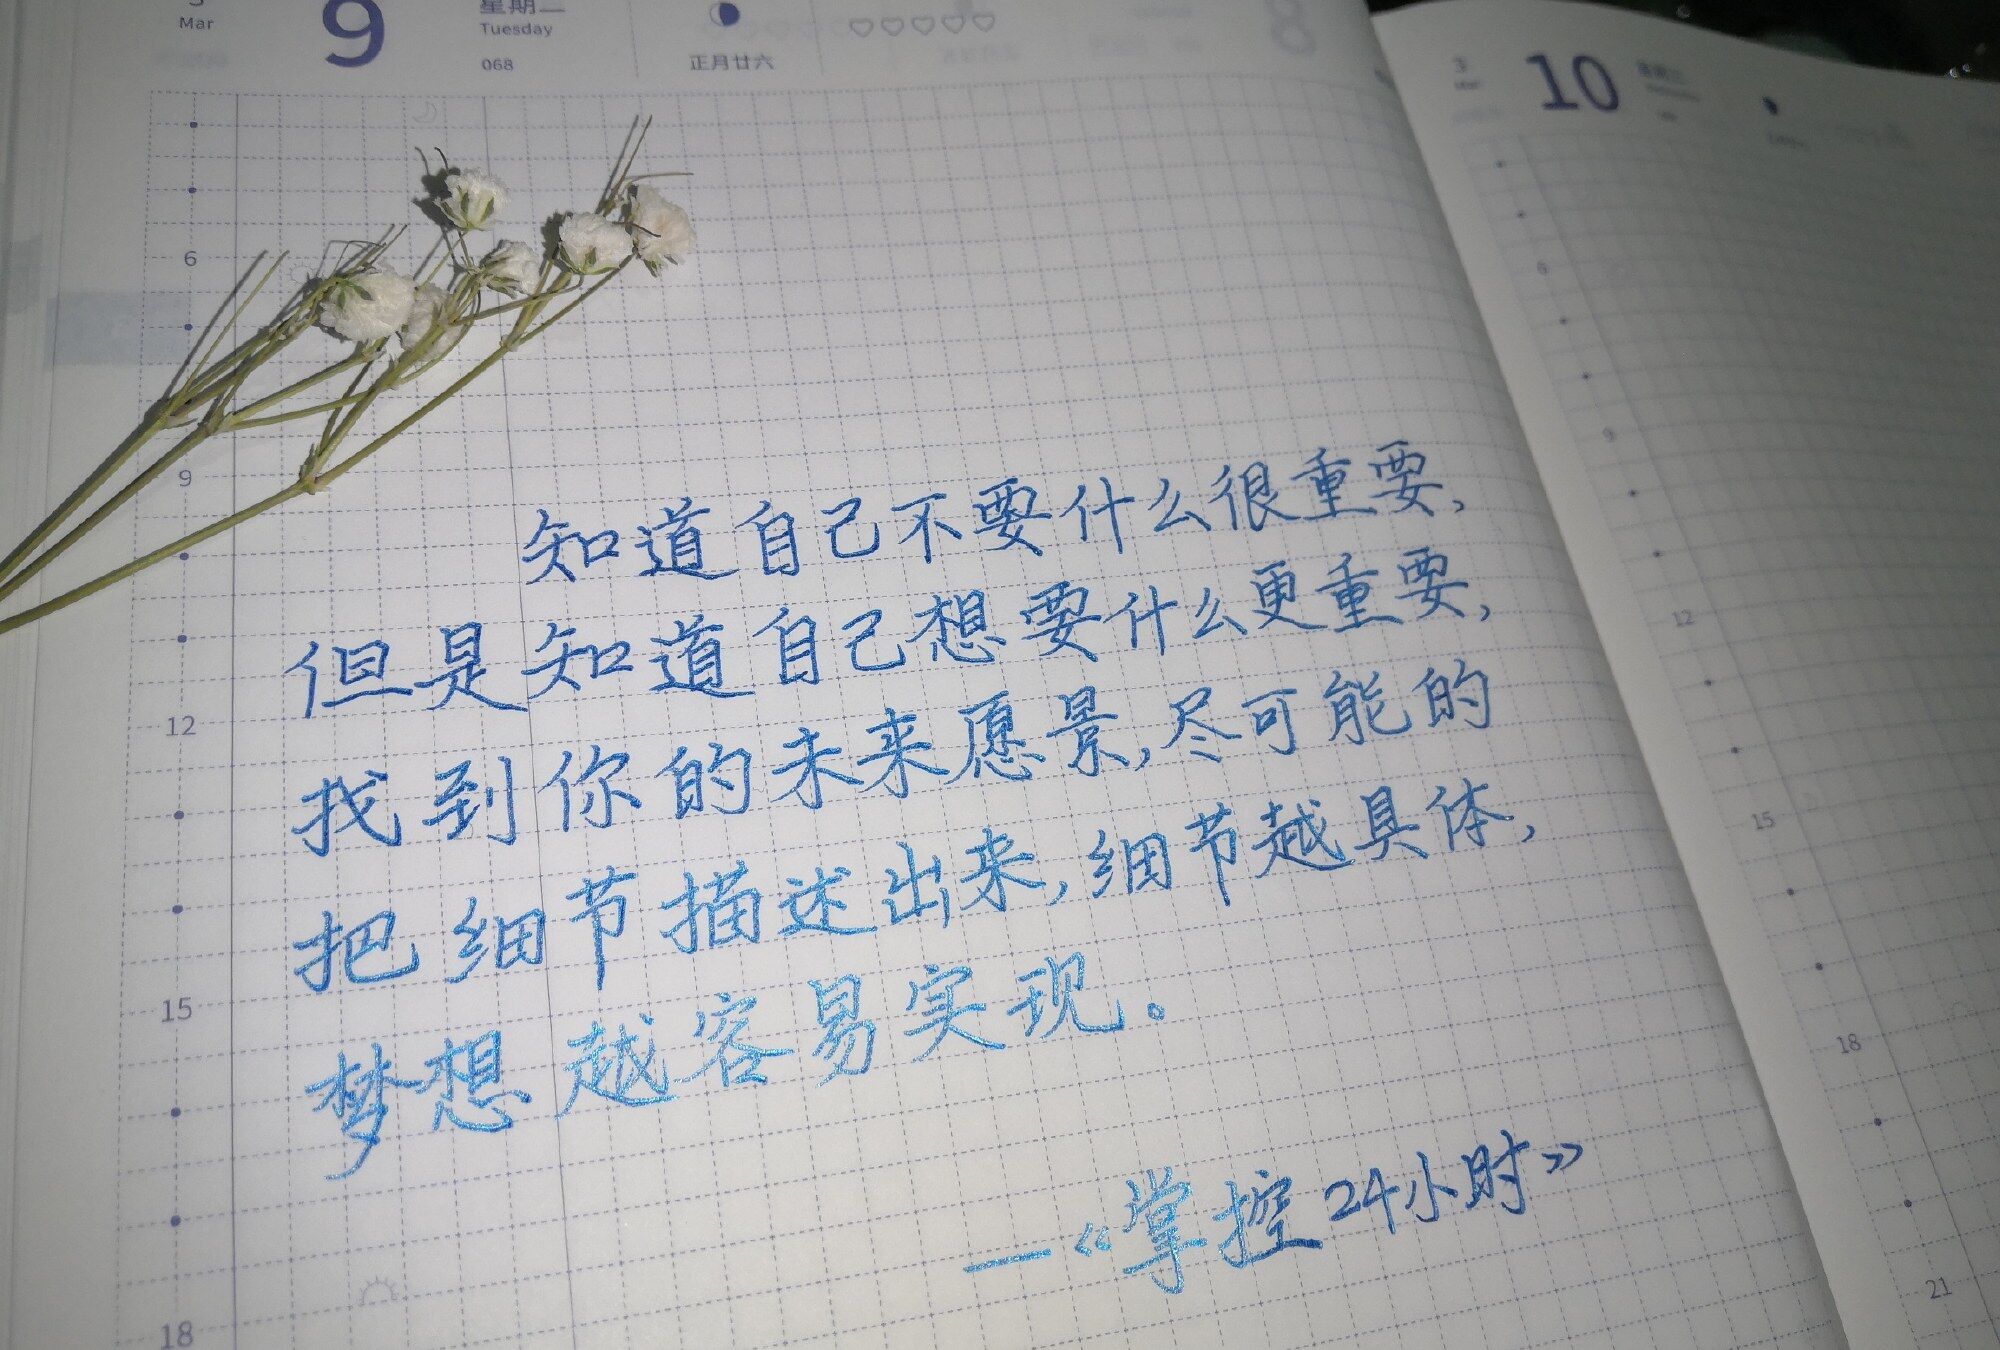 3 星期二
Mar 9 Tuesday
068 正月廿六
6
9
12
15
18
知道自己不要什么很重要,
但是知道自己想要什么更重要,
找到你的未来愿景,尽可能的
把细节描述出来,细节越具体,
梦想越容易实现。
—《掌控24小时》
3 10
6
9
12
15
18
21